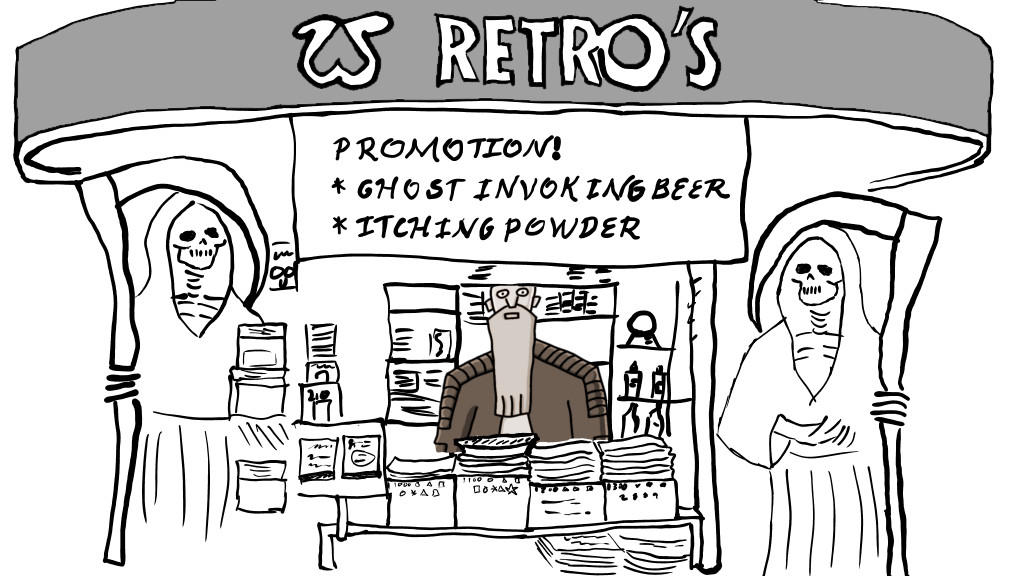 RETRO'S
PROMOTION!
* GHOST INVOKING BEER
* ITCHING POWDER